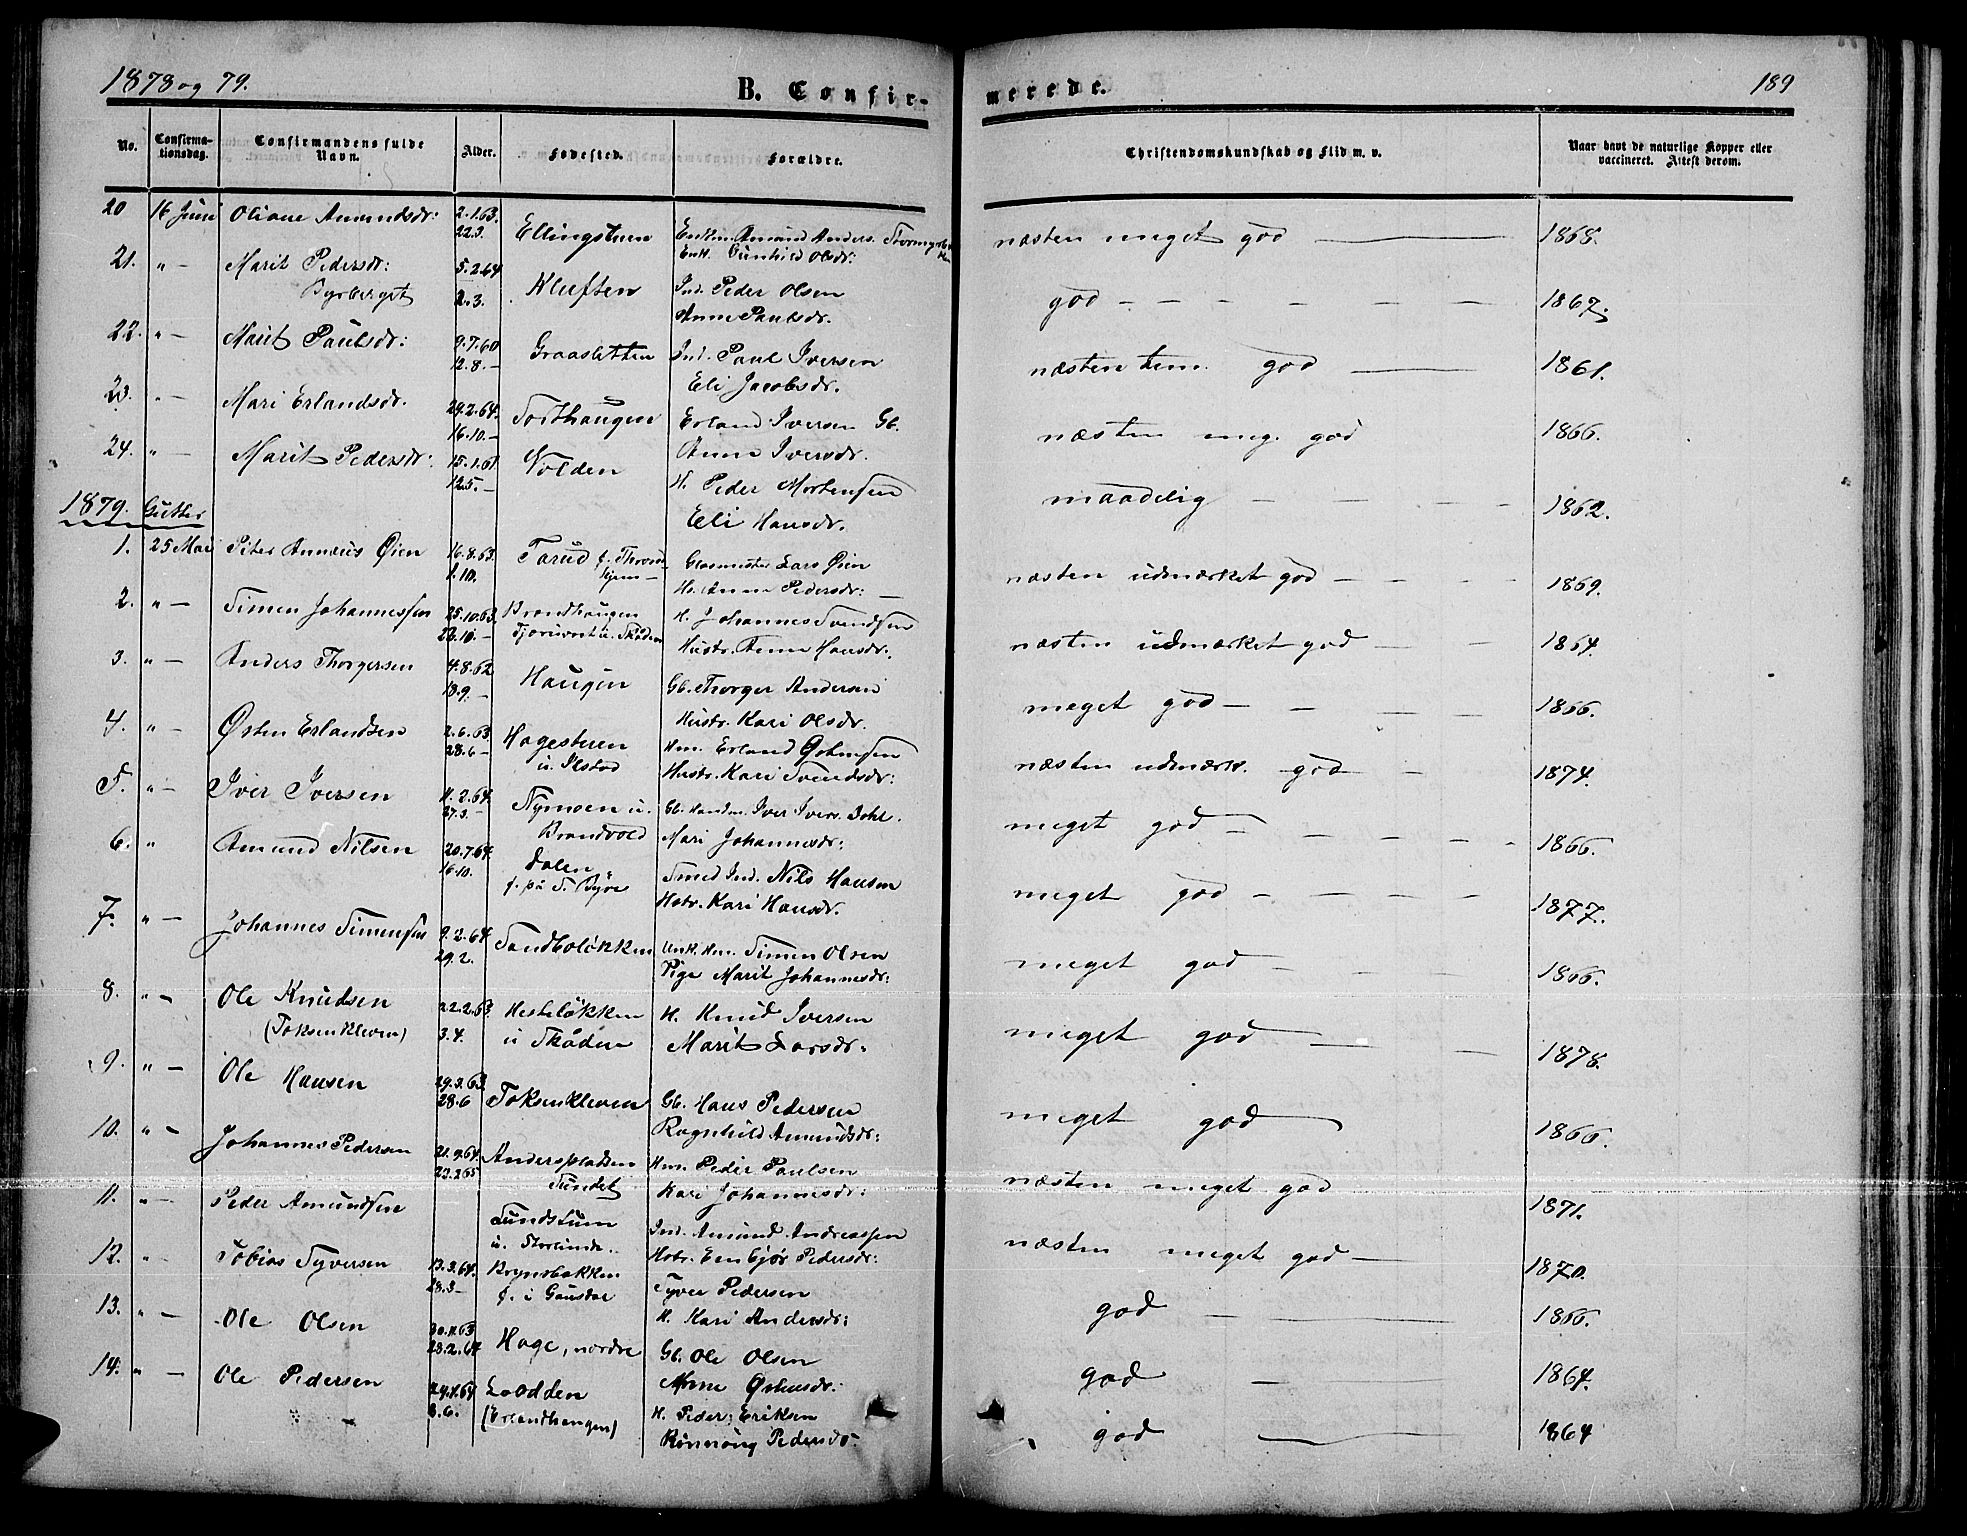 1878 og 79.
B. Confir-
merede.
189
No.
Confirma-
tionsdag.
Confirmandens fulde
Navn.
Alder.
Fødested.
Forældre.
Christendomskundskab og Flid m. v.
Naar havt de naturlige Kopper eller
vaccineret. Attest derom.
20 16 Juni Oliane Amundsdr: 2.1.63. 22.3. Ellingstuen Enkm. Amund Anders.
Enk. Gunhild Olsdr: næsten meget god 1868.
21. " — Marit Pedersdr: 5.2.64 2.3. Kluften Ind. Peder Olsen
Byrberget Anne Paulsdr. god 1867.
22. " — Marit Paulsdr: 9.7.60 12.8.— Graasletten Ind. Paul Iversen
Eli Jacobsdr. næsten tem. god 1861.
23. " — Mari Erlandsdr. 29.2.64. 16.10.— Torthaugen Erland Iversen Gb.
Anne Iversdr. næsten meg. god 1866.
24. " — Marit Pedersdr: 15.1.61 12.5.— Volden H. Peder Mortensen
Eli Hansdr. maadelig 1862.
1879. Gutter
1. 25 Mai Peter Annæus Øien 16.8.63. 1.10. Tarud Lars Øien
Hs. Anne Pedersdr: næsten udmærket god 1869.
2. " — Simen Johannessen 25.10.63. Brandhaugen H. Johannes Svendsen
Hustr. Anne Hansdr. næsten udmærket god 1864.
3. " — Anders Thorgersen 4.8.62 18.9.— Haugen Gb. Thorger Andersen
Hustr. Kari Olsdr. meget god 1866.
4. " — Østen Erlandsen 2.6.63. 28.6— Hagestuen Hm. Erland Østensen
u. Ilstad Hustr. Kari Svendsdr: næsten udmærk. god 1874.
5. " — Iver Iversen 11.2.64. 27.3.— Nymoen u. Iver Ivers.
Brandvold Mari Johannesdr: meget god 1866.
6. " Amund Nilsen 20.7.64. 16.10. Dalen Smed Ind. Nils Hansen
f. på S. Byre Hstr. Kari Hansdr. meget god 1877.
7. " — Johannes Simensen 9.2.64. 29.2. Sandboløkken Unk. Hm. Simen Olsen
Pige Marit Johannesdr: meget god 1866.
8. " — Ole Knudsen 22.2.63. 3.4. Hesteløkken H. Knud Iversen
(Toksenkleven) u Skåden Marit Larsdr: meget god 1878.
9. " — Ole Hansen 29.3.63. 28.6 Toksenkleven Gb. Hans Pedersen
Ragnhild Amundsdr: meget god 1866.
10. " — Johannes Pedersen 21.9.64. 22.2.65 Andersplatsen Hm. Peder Paulsen
Sundet Kari Johannesdr: næsten meget god 1871.
11. " — Peder Amundsen Sundstuen Ind. Amund Andreassen
u. Storlinde Hstr. Embjør Pedersdr: næsten meget god 1870.
12. " Tobias Syversen 13.3.64. 28.3— Brynsbakken Syver Pedersen
f. i Gausdal H. Kari Andersdr: god 1866.
13. " — Ole Olsen 30.11.63 28.2.64 Hage, nordre Gb. Ole Olsen
Anne Østensdr: god 1864.
14. " — Ole Pedersen 8.6. Lodden H. Peder Eriksen
(Erlandhaugen) Rønnoug Pedersdr. god 1864